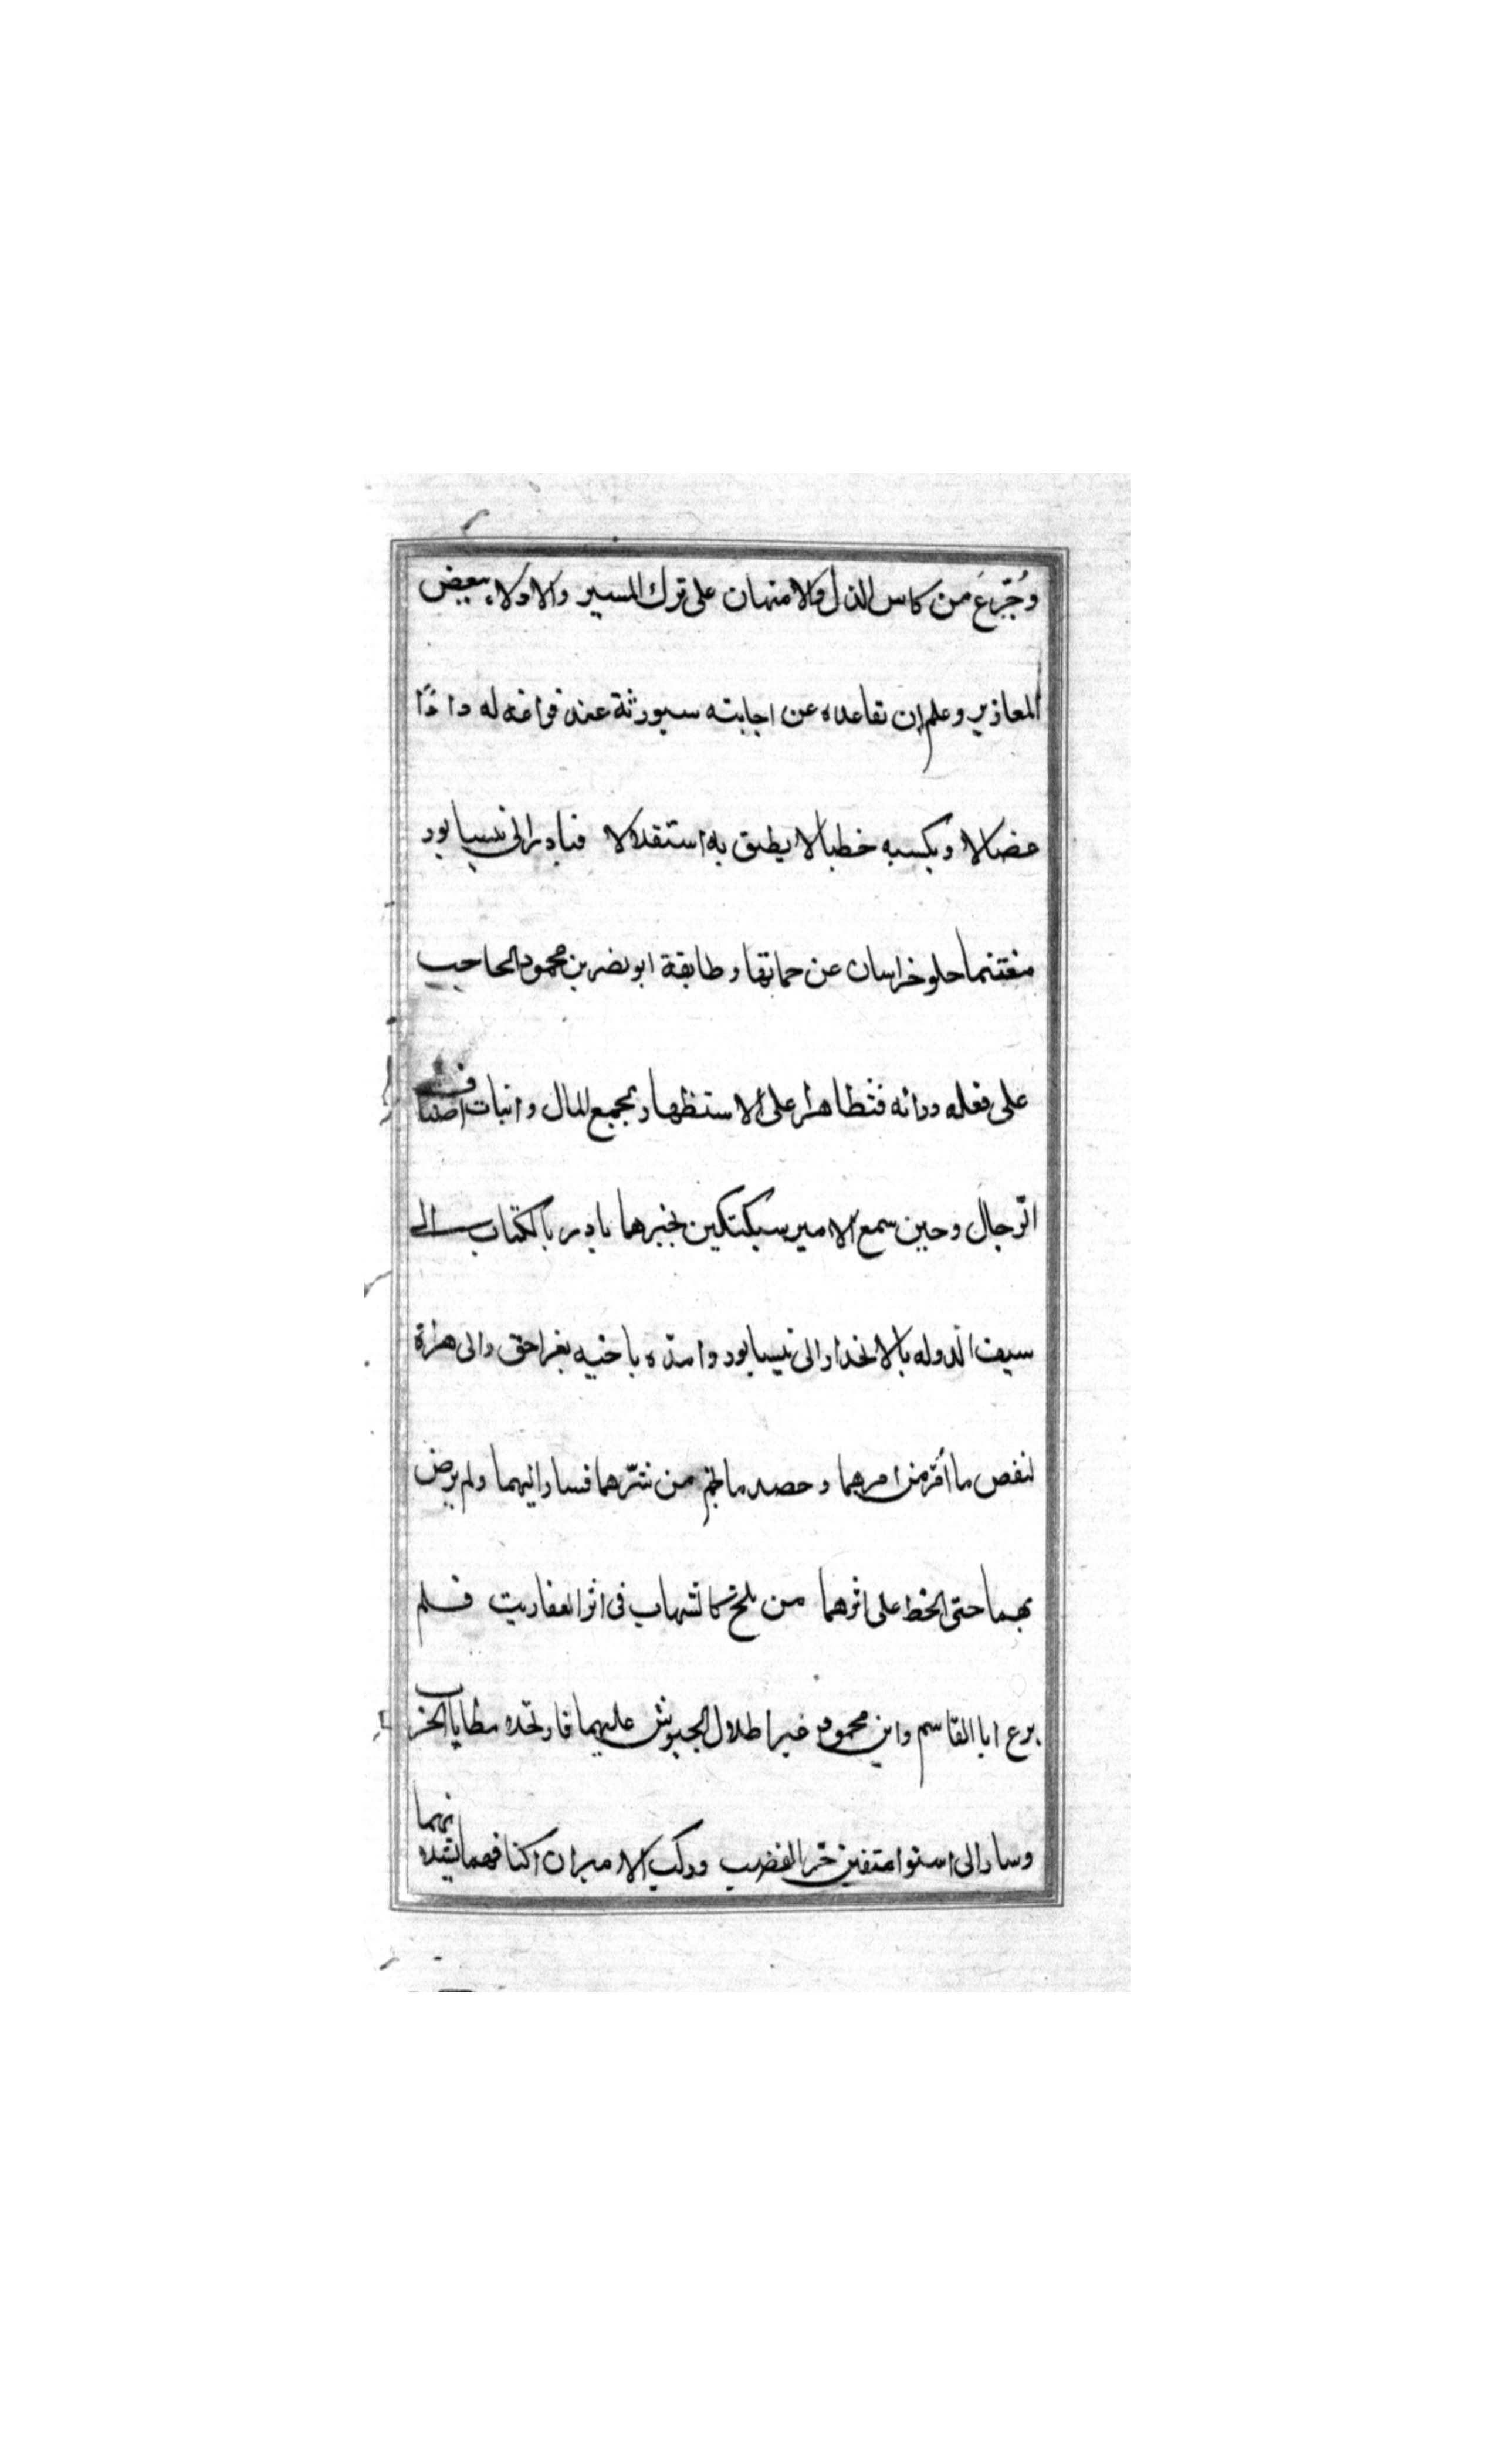 وُجّرعَ من كاس الذل والامتهان على ترك المسير والاولاء ببعض
المعاذير وعلم ان تقاعده عن اجابته سيورثة عند فراغه له داءًا
عضالا ويكسبه خطبا لا يطيق به استقلالا فبادر الى نيسابور
مغتنما خلو خراسان عن حماتها وطابقة ابو نصر بن محمود الحاجب
على فعله ورائه فتظاهرا على الاستظهار بجمع المال واثبات اصناف
الرّجال وحين سمع الامير سبكتكين بخبرهما بادر بالكتاب الى
سيف الدوله بالانحدار الى نيسابور وامدّه باخيه بغراجق والى هراة
لنقض ما اُمّر من امرهما وحصد ما نجم من شرّهما فسار اليهما ولم يرض
بهما حتى انحط على اثرهما من بلخ كالشهاب فى اثر العفاريت فلم
يرع ابا القاسم وابن محمود غير اطلال الجيوش عليهما فارتحده مطايا الحرب
وسارا الى استوا متقين حّر الغضب وركب الاميران اكنافهما يشدانهما